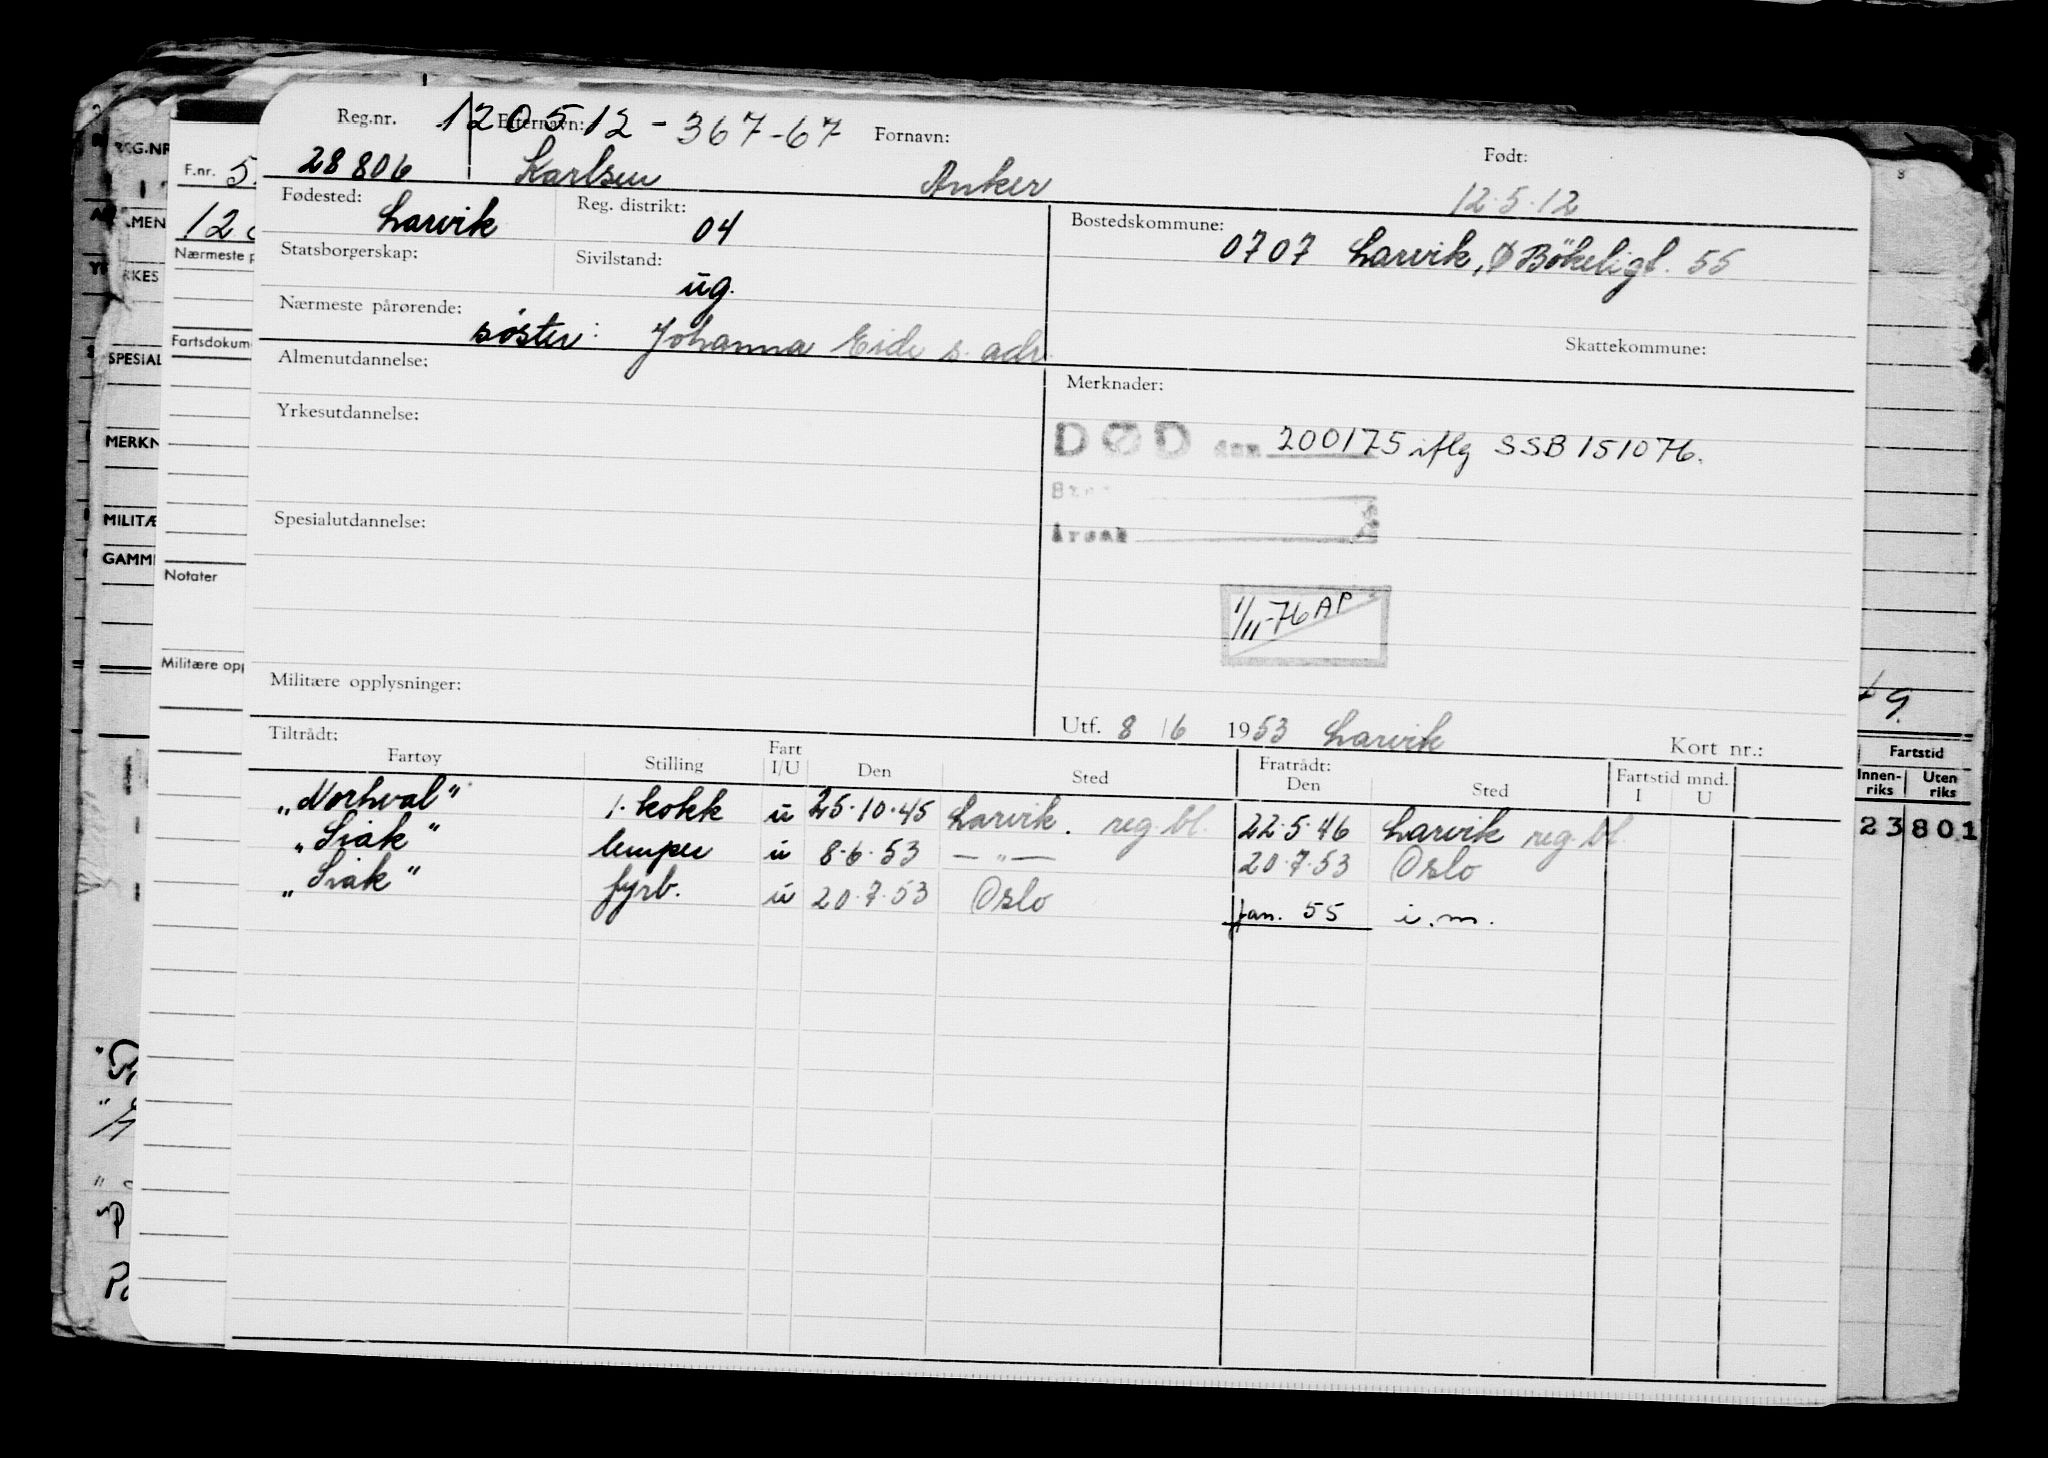 Reg.nr. Etternavn: 120512-367-67 Fornavn: Født:
28806 Karlsen Anker 12.5.12
Fødested: Larvik Reg. distrikt: 04 Bostedskommune: 0707 Larvik, Ø Bökeligt. 55
Statsborgerskap: Sivilstand: ug.
Nærmeste pårørende: søster: Johanna Eide s. adr. Skattekommune:
Almenutdannelse: Merknader:
Yrkesutdannelse: DØD den 200175 iflg SSB 151076.
Spesialutdannelse: Årsak
1/11-76 AP
Militære opplysninger:
Utf. 8/6 1953 Larvik Kort nr.:
Tiltrådt: Fratrådt:
Fartøy Stilling Fart I/U Den Sted Den Sted Fartstid mnd. I U
"Norhval" 1. kokk u 25.10.45 Larvik. reg. bl. 22.5.46 Larvik reg. bl.
"Siak" lemper u 8.6.53 — " — 20.7.53 Oslo
"Siak" fyrb. u 20.7.53 Oslo Jan. 55 i.m.
F.nr. 5
12
Nærmeste p
Fartsdokum
Notater
Militære opp
REG.NR
MEN
RKES
SPESIAL
MERKN
MILITÆ
GAMM
9.
Fartstid
Innen-riks Uten riks
23801